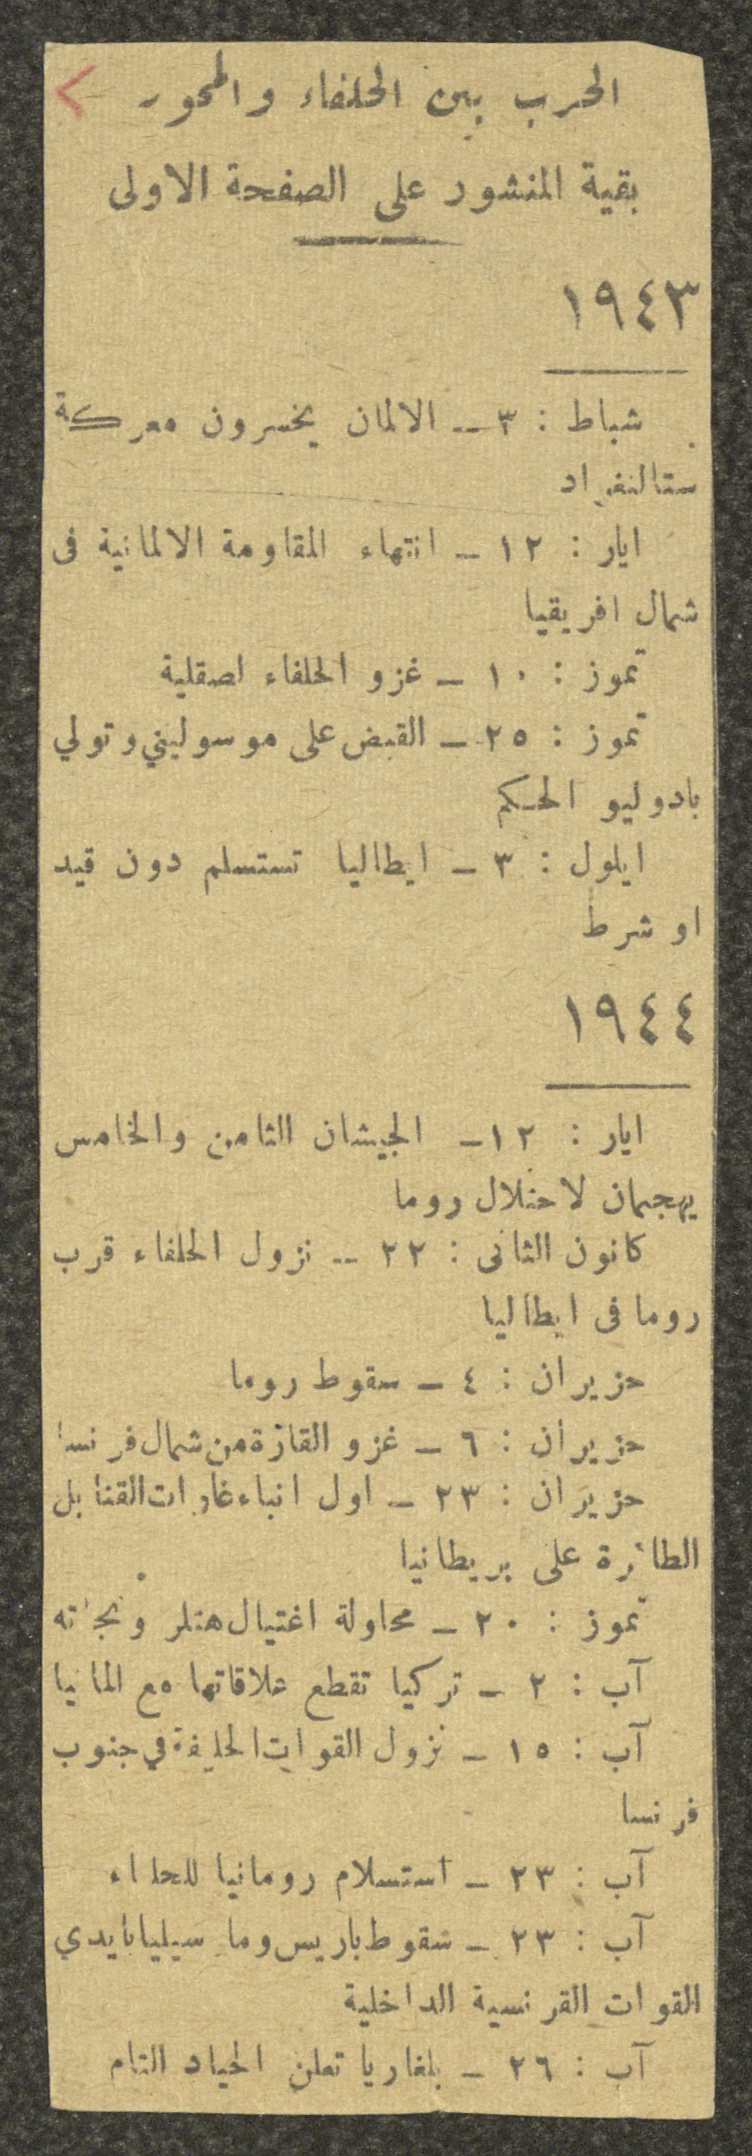 الحرب بين الحلفاء والمحور
بقية المنشور على الصفحة الاولى
١٩٤٣
شباط : ٣ ــ الالمان يخسرون معركة
ستالنغراد
ايار : ١٢ ــ انتهاء المقاومة الالمانية فى
شمال افريقيا
تموز : ١٠ ــ غزو الحلفاء لصقلية
تموز : ٢٥ ــ القبض على موسوليني وتولي
بادوليو الحكم
ايلول : ٣ ــ ايطاليا تستسلم دون قيد
او شرط
١٩٤٤
ايار : ١٢ــ الجيشان الثامن والخامس
يهجمان لاحتلال روما
كانون الثانى : ٢٢ ــ نزول الحلفاء قرب
روما فى ايطاليا
حزيران : ٤ ــ سقوط روما
حزيران : ٦ ــ غزو القارة من شمال فرنسا
حزيران : ٢٣ ــ اول انباء غارات القنابل
الطائرة على بريطانيا
تموز : ٢٠ ــ محاولة اغتيال هتلر ونجاته
آب : ٢ ــ تركيا تقطع علاقاتها مع المانيا
آب : ١٥ ــ نزول القوات الحليفة في جنوب
فرنسا
آب : ٢٣ ــ استسلام رومانيا للحلفاء
آب : ٢٣ ــ سقوط باريس ومارسيليا بايدي
القوات الفرنسية الداخلية
آب : ٢٦ ــ بلغاريا تعلن الحياد التام